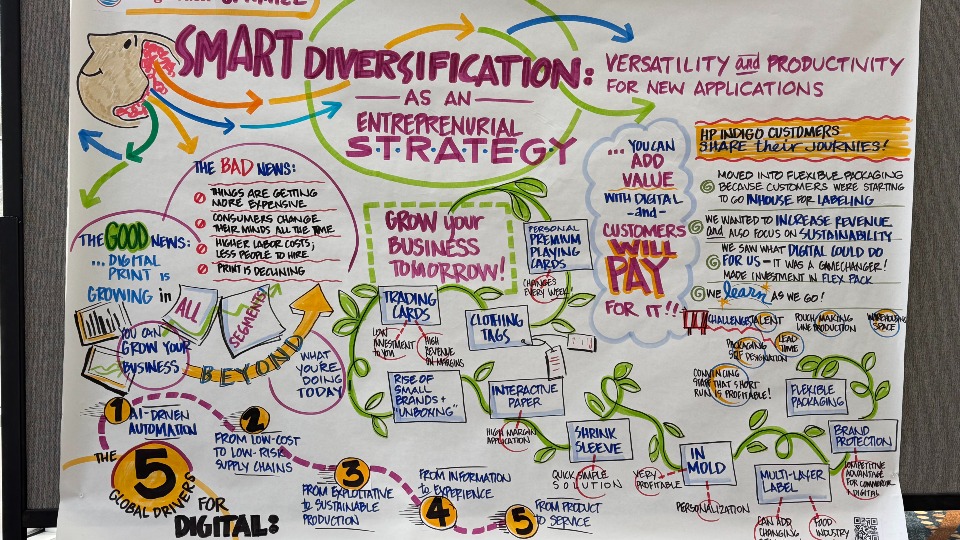 SMART DIVERSIFICATION:
AS AN
ENTREPRENURIAL
S·T·R·A·T·E·G·Y
VERSATILITY and PRODUCTIVITY
FOR NEW APPLICATIONS
THE BAD NEWS:
THINGS ARE GETTING
MORE EXPENSIVE
CONSUMERS CHANGE
THEIR MINDS ALL THE TIME
HIGHER LABOR COSTS;
LESS PEOPLE TO HIRE
PRINT IS DECLINING
THE GOOD NEWS:
... DIGITAL
PRINT is
GROWING in
ALL
SEGMENTS!
YOU CAN
GROW YOUR
BUSINESS
BEYOND
WHAT
YOU'RE
DOING
TODAY
GROW your
BUSINESS
TOMORROW!
PERSONAL
PREMIUM
PLAYING
CARDS
CHANGES
EVERY WEEK!
TRADING
CARDS
LOW
INVESTMENT
to YOU
HIGH
REVENUE
ON MARGINS
CLOTHING
TAGS
RISE OF
SMALL
BRANDS +
"UNBOXING"
INTERACTIVE
PAPER
HIGH MARGIN
APPLICATION
SHRINK
SLEEVE
QUICK SIMPLE
SOLUTION
VERY
PROFITABLE
IN
MOLD
PERSONALIZATION
MULTI-LAYER
LABEL
CAN ADD
CHANGING
FOOD
INDUSTRY
FLEXIBLE
PACKAGING
BRAND
PROTECTION
COMPETITIVE
ADVANTAGE
FOR COMMERCIAL
DIGITAL
... YOU CAN
ADD
VALUE
WITH DIGITAL
-and-
CUSTOMERS
WILL
PAY
FOR IT!!
HP INDIGO CUSTOMERS
SHARE their JOURNIES!
MOVED INTO FLEXIBLE PACKAGING
BECAUSE CUSTOMERS WERE STARTING
TO GO INHOUSE FOR LABELING
WE WANTED TO INCREASE REVENUE
and ALSO FOCUS ON SUSTAINABILITY
WE SAW WHAT DIGITAL COULD DO
FOR US - IT WAS A GAMECHANGER!
MADE INVESTMENT IN FLEX PACK
WE learn AS WE GO!
CHALLENGES
TALENT
POUCH MAKING
LINE PRODUCTION
WAREHOUSING
SPACE
PACKAGING
LEAD
TIME
CONVINCING
THAT SHORT
RUN IS PROFITABLE!
THE
5
GLOBAL DRIVERS
FOR
DIGITAL:
1 AI-DRIVEN
AUTOMATION
2
FROM LOW-COST
TO LOW-RISK
SUPPLY CHAINS
3
FROM EXPLOITATIVE
to SUSTAINABLE
PRODUCTION
FROM INFORMATION
to EXPERIENCE
4
5 FROM PRODUCT
to SERVICE